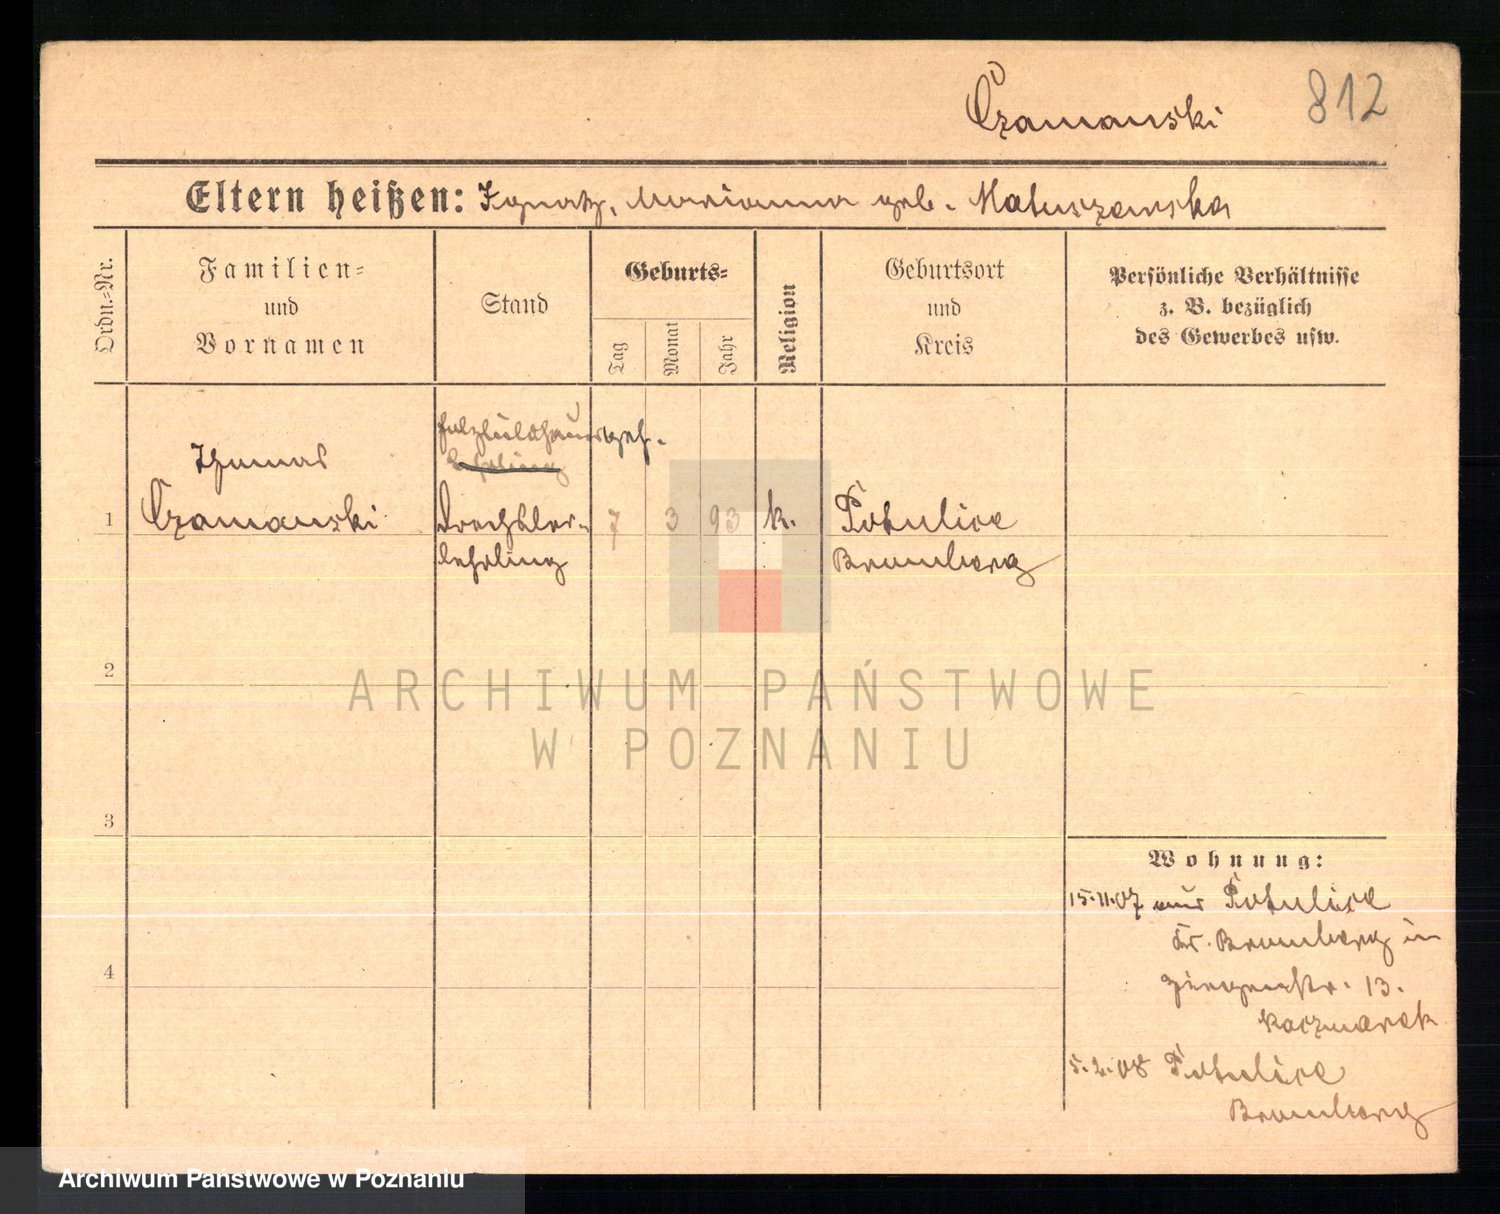 Czamanski 812
Eltern heißen: Ignatz, Marianna geb. Matuszewska
Ordn.=Nr.
Familien=
und
Vornamen
Stand
Geburts=
Tag
Monat
Jahr
Religion
Geburtsort
und
Kreis
Persönliche Verhältnisse
z. B. bezüglich
des Gewerbes usw.
Holzbildhauergeh.
Lehrling
Thomas
1 Czamanski Drechsler- 7 3 93 k. Potulice
lehrling Bromberg
2
ARCHIWUM PAŃSTWOWE
W POZNANIU
3
Wohnung:
15.11.07 aus Potulice
Kr. Bromberg in
4
13.
Kaczmarek
5.2.08 Potulice
Bromberg
Archiwum Państwowe w Poznaniu